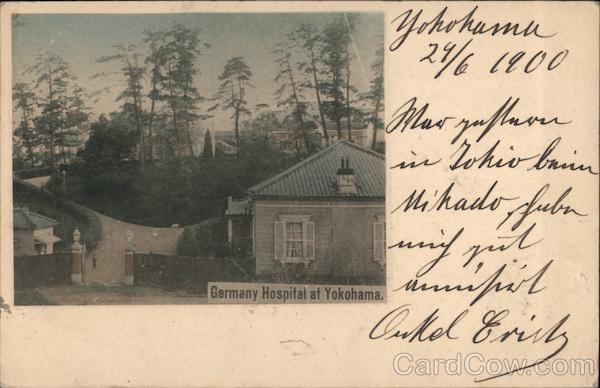 Yokohama
24/6 1900
War gestern
in Tokio beim
Mikado, habe
mich gut
amüsirt
Onkel
Germany Hospital at Yokohama.
CardCow.com